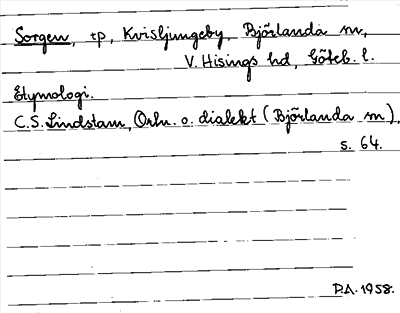 Sorgen, tp, Kvisljungeby, Björlanda sn,
V. Hisings hd, Göteb. l.
Etymologi.
C.S. Lindstam, Ortn. o. dialekt (Björlanda sn),
s. 64.
D.A. 1958.